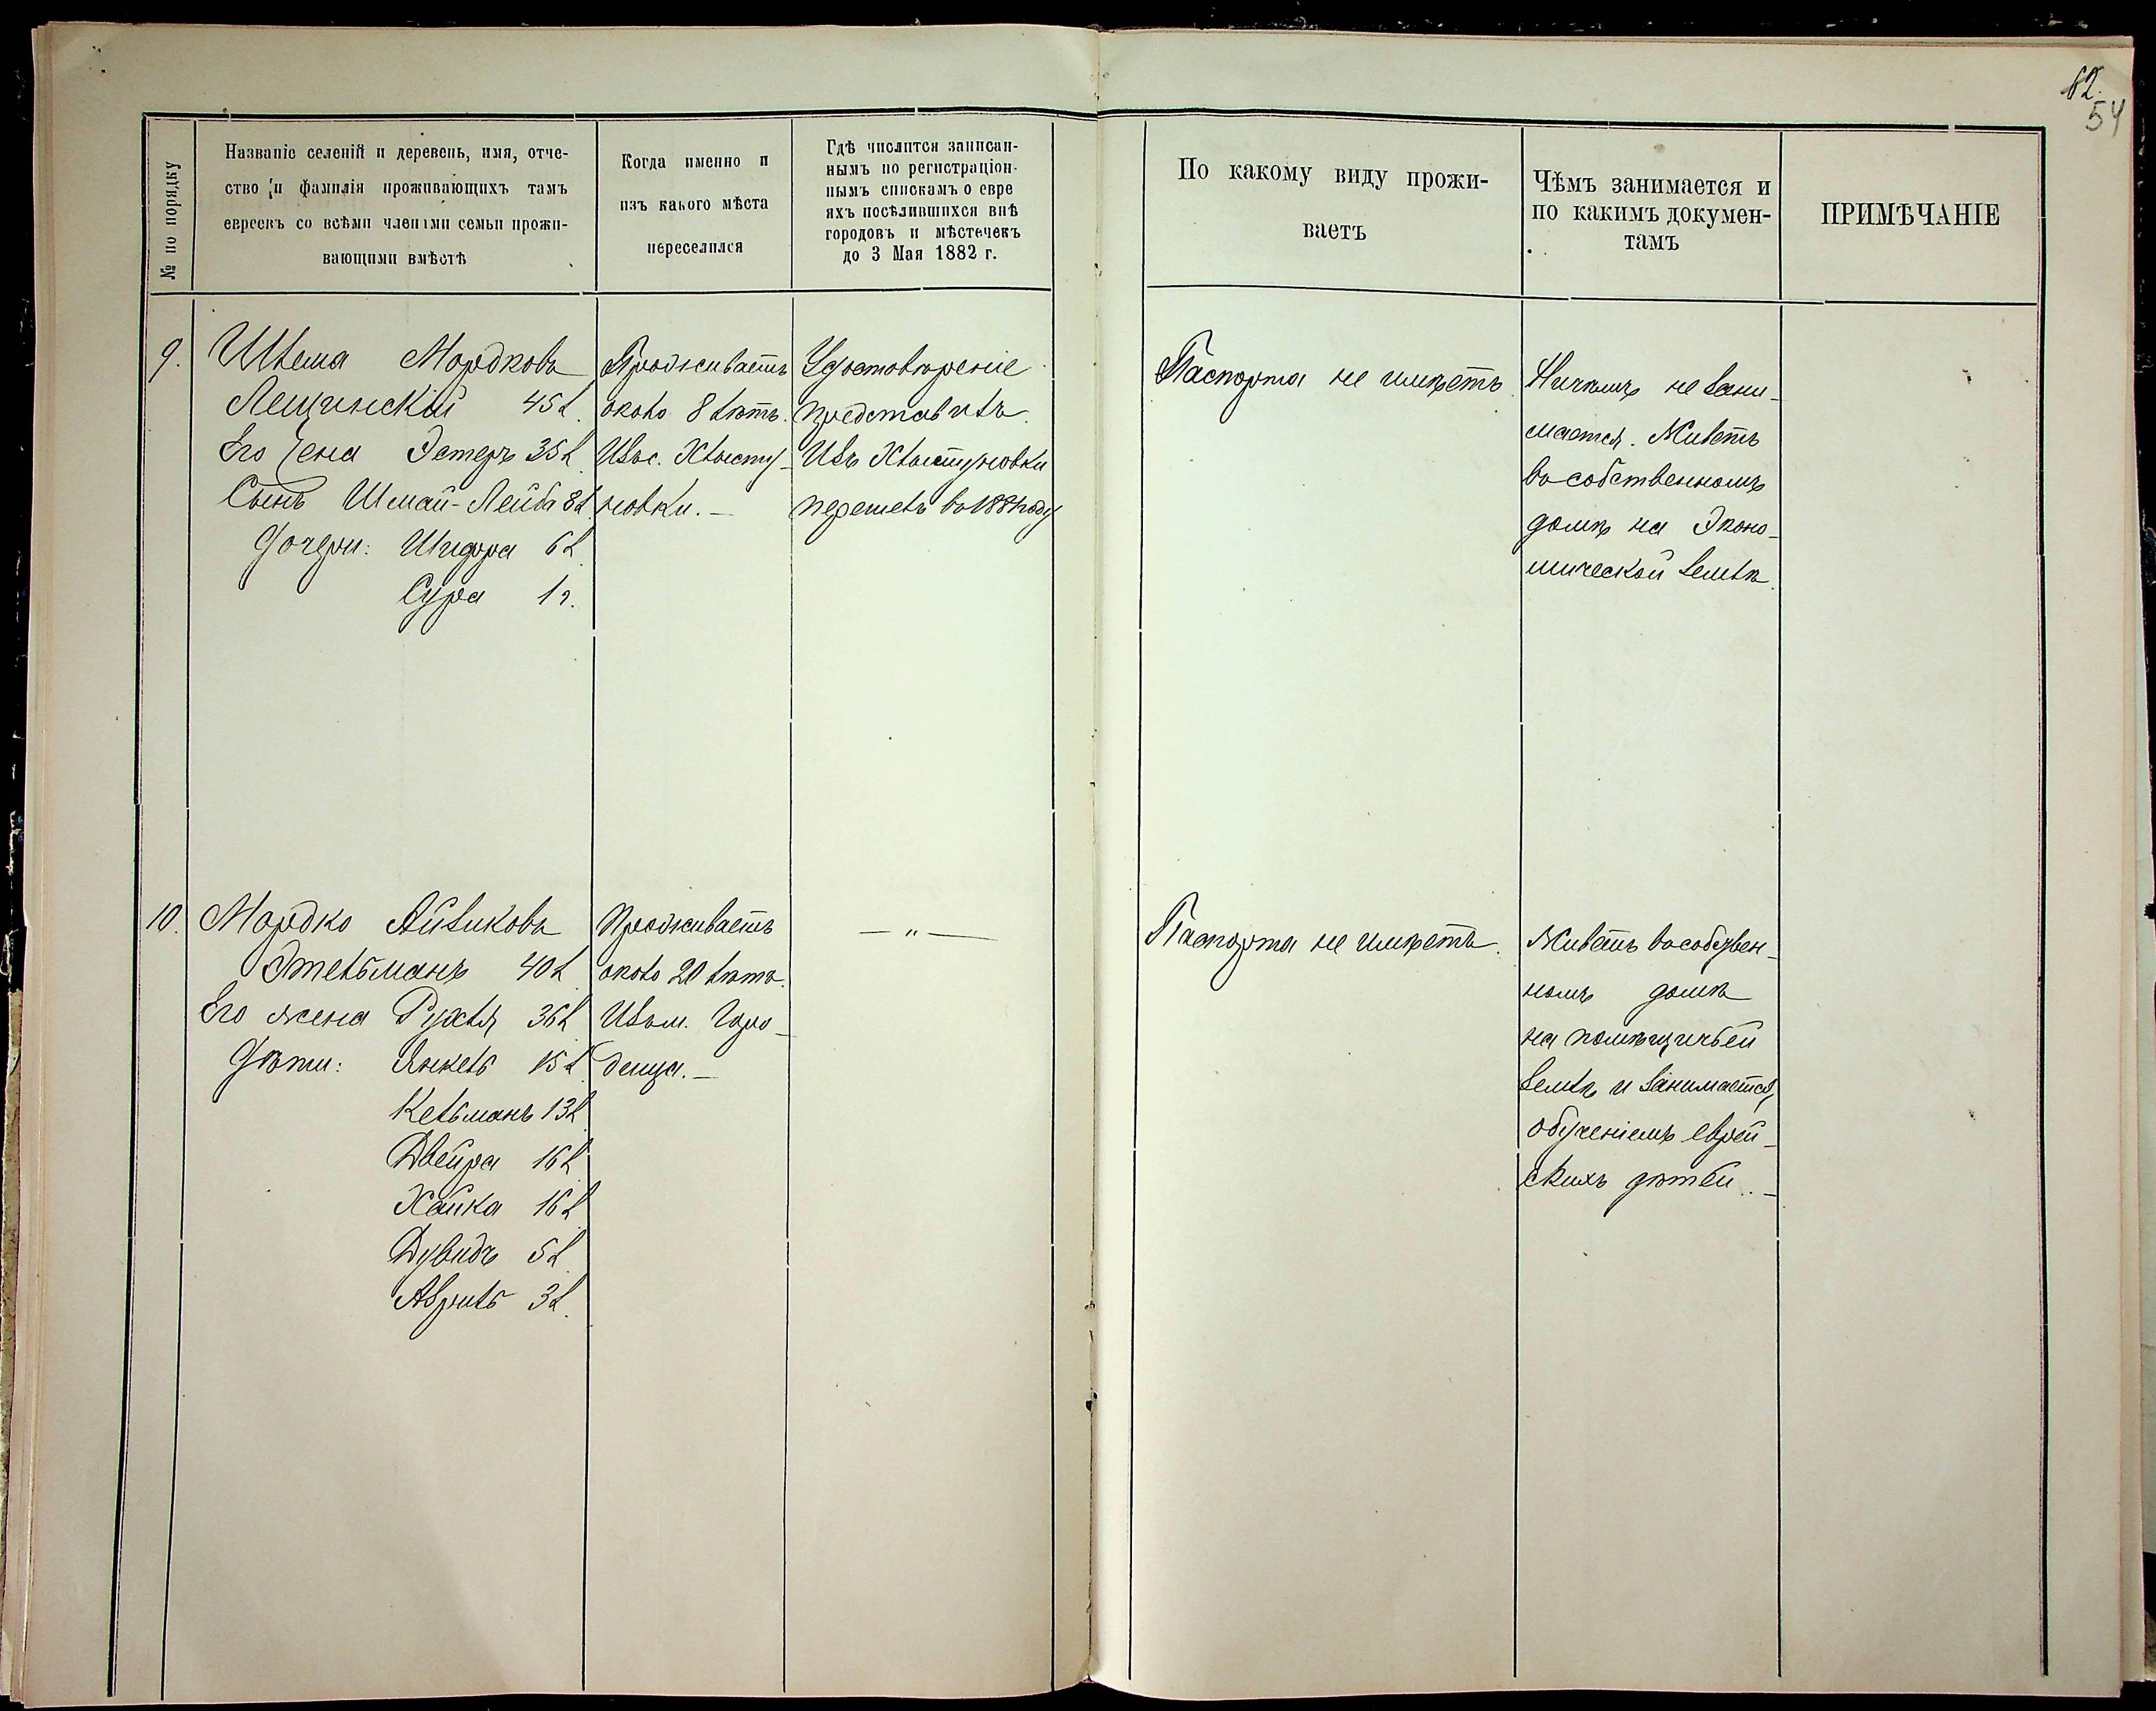 62.
54
№ по порядку
Названіе селеній и деревень, имя, отче-
ство и фамилія проживающихъ тамъ
евреевъ со всѣми членами семьи прожи-
вающими вмѣстѣ
Когда именно и
изъ какого мѣста
переселился
Гдѣ числится записан-
нымъ по регистраціон-
нымъ спискамъ о евре
яхъ посѣлившихся внѣ
городовъ и мѣстечекъ
до 3 Мая 1882 г.
По какому виду прожи-
ваетъ
Чѣмъ занимается и
по какимъ докумен-
тамъ
ПРИМѢЧАНІЕ
9.
Шлема Мордковъ
Лещинскій 45 л.
Его жена Эстеръ 35 л.
Сынъ Шмай-Лейба 8 л.
Дочери: Шифра 6 л.
Сура 1 г.
Проживаетъ
около 8 лѣтъ.
Изъ с. Хлысту-
новки. —
Удостовѣреніе
представилъ.
Изъ Хлыстуновки
перешелъ въ 1881 году
Паспорта не имѣетъ.
Ничѣмъ не зани-
мается. Живетъ
въ собственномъ
домѣ на Эконо-
мической землѣ.
10.
Мордко Айзиковъ
Этельманъ 40 л.
Его жена Рухля 36 л.
Дѣти: Янкель 15 л.
Кельманъ 13 л.
Двейра 16 л.
Хайка 16 л.
Дувидъ 5 л.
Азриль 3 л.
Проживаетъ
около 20 лѣтъ.
Изъ м. Горо-
дища. —
— „ —
Паспорта не имѣетъ.
Живетъ въ собствен-
номъ домѣ
на помѣщичьей
землѣ и занимается
обученіемъ еврей-
скихъ дѣтей. —